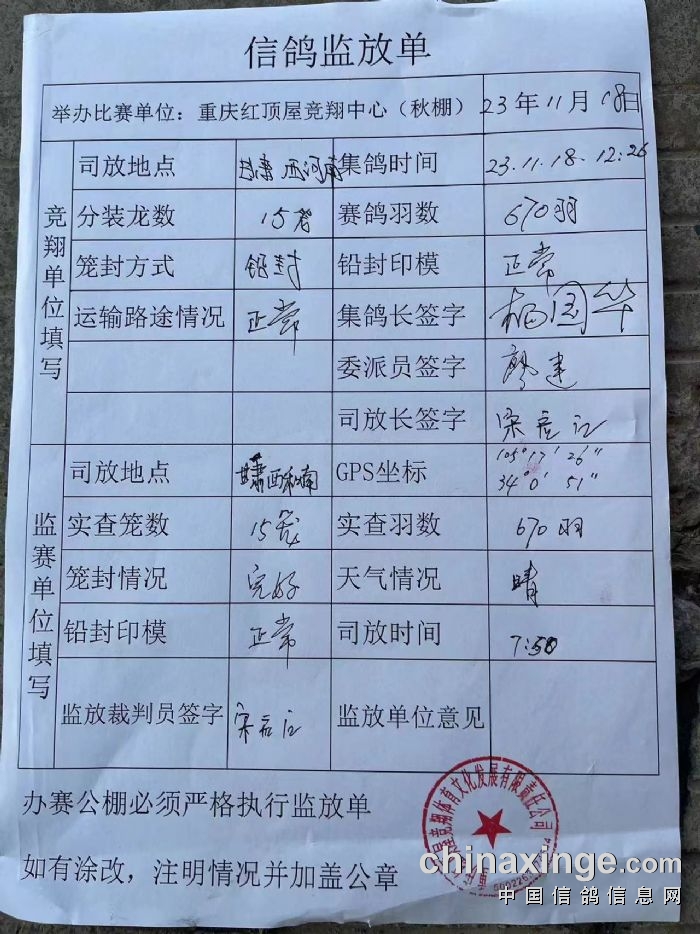 信鸽监放单
举办比赛单位：重庆红顶屋竞翔中心（秋棚） 23年11月18日
竞翔单位填写
司放地点 甘肃西河南 集鸽时间 23.11.18.12:26
分装龙数 15笼 赛鸽羽数 670羽
笼封方式 铅封 铅封印模 正常
运输路途情况 正常 集鸽长签字 杨国华
委派员签字 廖建
司放长签字 宋宏江
监赛单位填写
司放地点 甘肃西和南 GPS坐标 105°17′26″ 34°0′51″
实查笼数 15笼 实查羽数 670羽
笼封情况 完好 天气情况 晴
铅封印模 正常 司放时间 7:50
监放裁判员签字 宋宏江 监放单位意见
办赛公棚必须严格执行监放单
如有涂改，注明情况并加盖公章
竞翔体育文化发展有限责任公司
chinaxinge.com
中国信鸽信息网